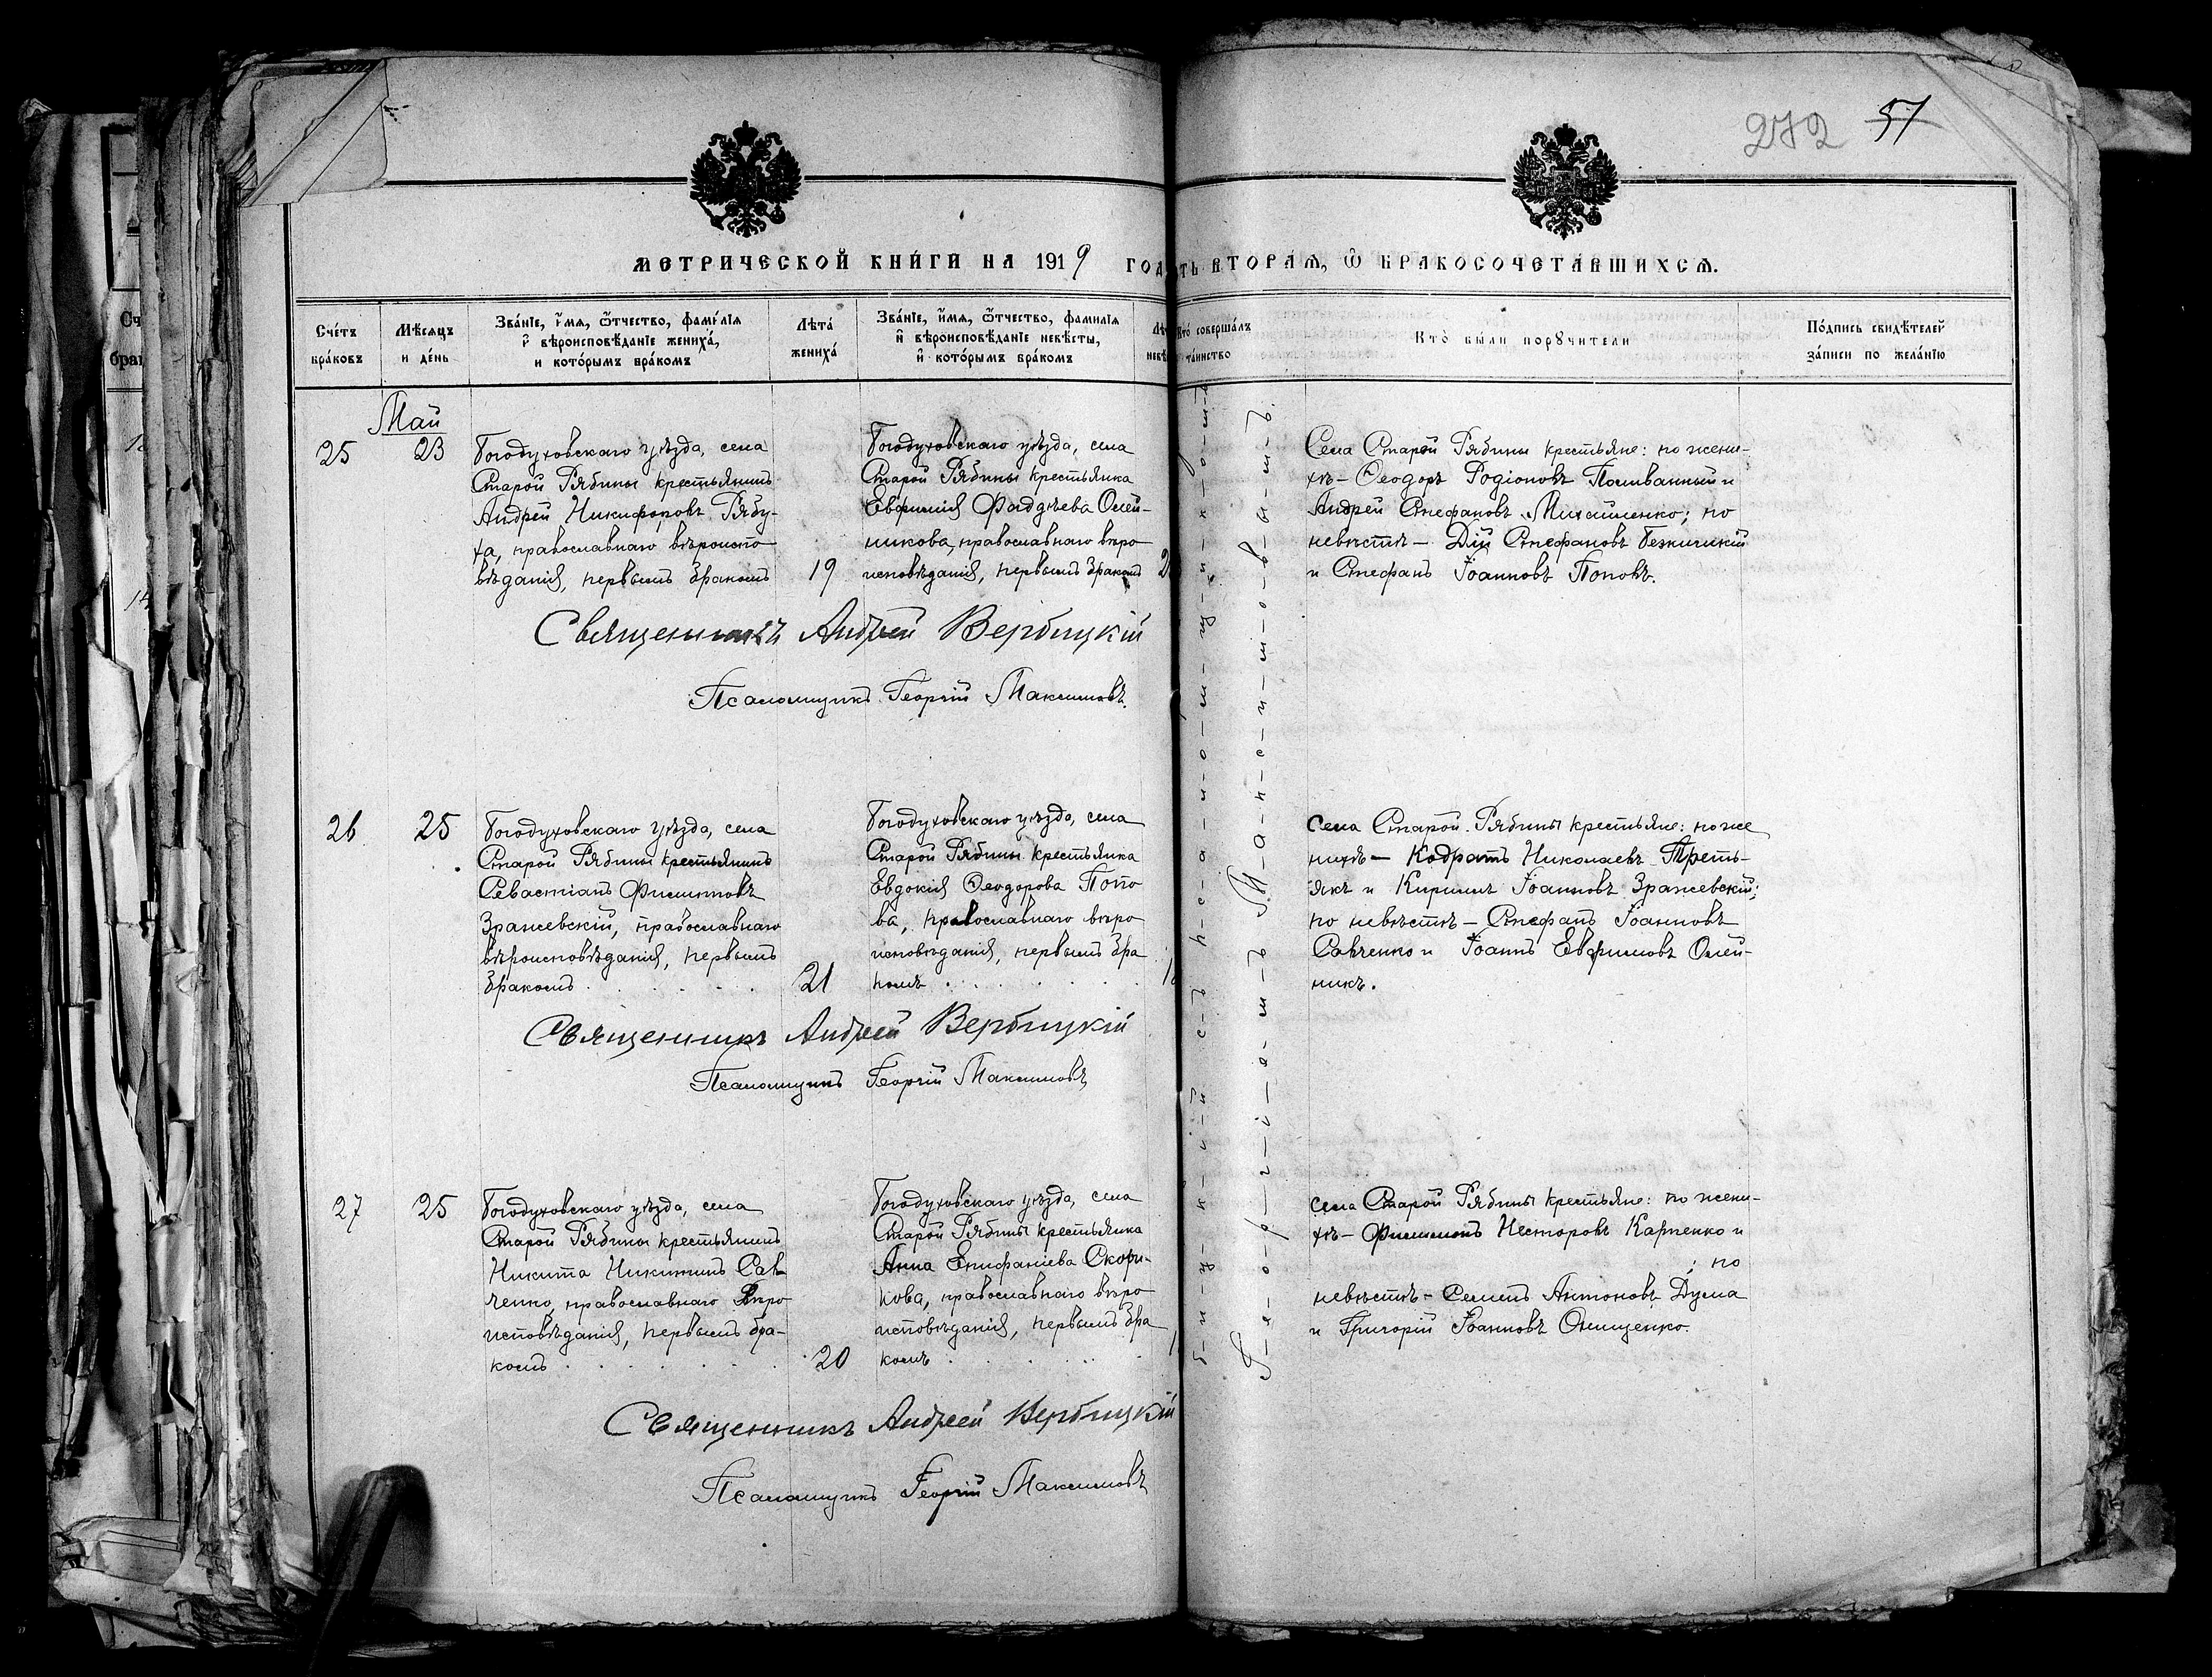 272 57
МЕТРИЧЕСКОЙ КНИ́ГИ НА 1919 ГОД
ТЬ ВТОРА́Ѧ, Ѿ БРАКОСОЧЕТА́ВШИХСѦ.
Сче́тъ бра́ковъ
Мѣ́сяцъ и де́нь
Зва́нїе, и҆́мя, ѻ҆́тчество, фами́лїя и҆ вѣроисповѣ́данїе жениха́, и кото́рымъ бра́комъ
Лѣта́ жениха́
Зва́нїе, и҆́мя, ѻ҆́тчество, фамилїя и҆ вѣроисповѣ́данїе невѣ́сты, и҆ кото́рымъ бра́комъ
Кто̀ совершалъ та́инство
Кто̀ бы́ли порꙋчители
По́дпись свидѣ́телей за́писи по жела́нїю
Май
25 23
Богодуховскаго уѣзда, села
Старой Рябины крестьянинъ
Андрей Никифоровъ Рябу-
ха, православнаго вѣроиспо
вѣданія, первымъ бракомъ
19
Богодуховскаго уѣзда, села
Старой Рябины крестьянка
Евфимія Фаддѣева Олей-
никова, православнаго вѣро
исповѣданія, первымъ бракомъ
2
Села Старой Рябины крестьяне: по жени-
хѣ – Ѳеодоръ Родіоновъ Поливанный и
Андрей Стефановъ Михайленко; по
невѣстѣ – Дій Стефановъ
и Стефанъ Іоанновъ Поповъ.
Священникъ Андрей Вербицкій
Псаломщикъ Георгій Максимовъ.
26 25
Богодуховскаго уѣзда, села
Старой Рябины крестьянинъ
Севастіанъ Филиповъ
Зражевскій, православнаго
вѣроисповѣданія, первымъ
бракомъ
21
Богодуховскаго уѣзда, села
Старой Рябины крестьянка
Евдокія Ѳеодорова Попо
ва, православнаго вѣро
исповѣданія, первымъ бра
комъ
1
Села Старой Рябины крестьяне: по же
нихѣ – Кодратъ Николаевъ Треть-
якъ и Кириллъ Іоанновъ Зражевскій;
по невѣстѣ – Стефанъ Іоанновъ
Савченко и Іоаннъ Евфимовъ Олей-
никъ.
Священникъ Андрей Вербицкій
Псаломщикъ Георгій Максимовъ
27 25
Богодуховскаго уѣзда, села
Старой Рябины крестьянинъ
Никита Никитинъ Сав
ченко, православнаго вѣро
исповѣданія, первымъ бра-
комъ
20
Богодуховскаго уѣзда, села
Старой Рябины крестьянка
Анна Епифаніева Скори-
кова, православнаго вѣро
исповѣданія, первымъ бра
комъ
1
села Старой Рябины крестьяне: по жени-
хѣ – Филимонъ Несторовъ Карпенко и
; по
невѣстѣ – Семенъ Антоновъ Дума
и Григорій Іоанновъ Онищенко.
Священникъ Андрей Вербицкій
Псаломщикъ Георгій Максимовъ
б-и-ц-к-і-й с-ъ п-с-а-л-о-м-щ-и-к-о-м-ъ
Г-е-о-р-г-і-е-м-ъ М-а-к-с-и-м-о-в-ы-м-ъ.